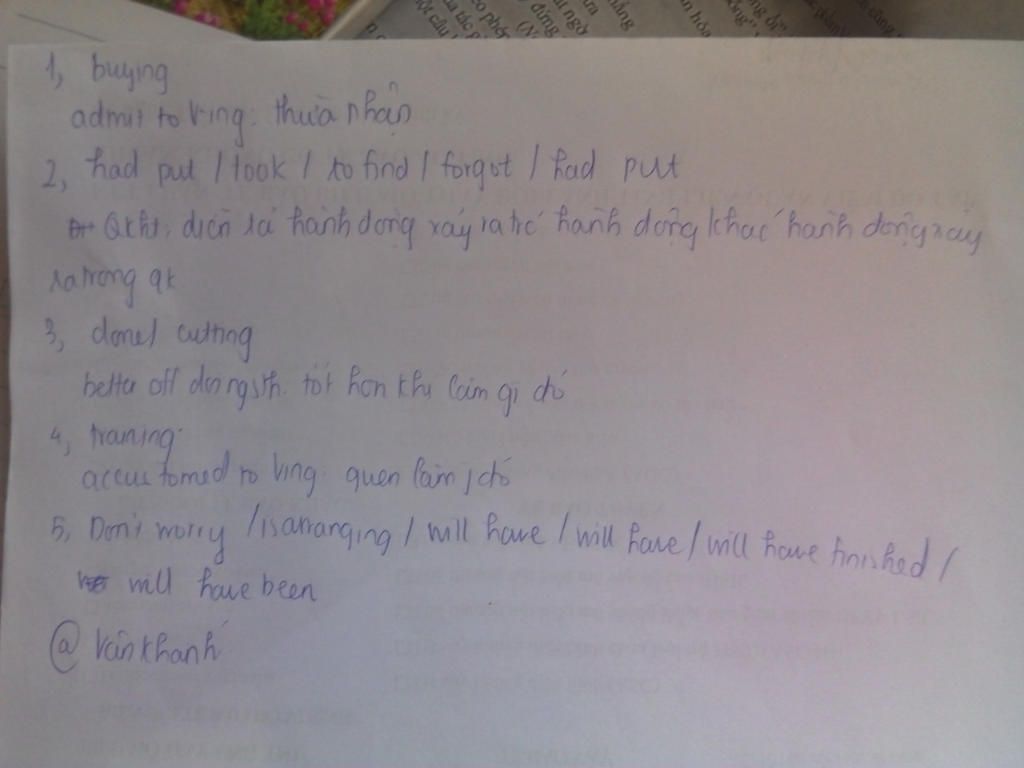 hẳng
ưa
t ngờ
đứng
(N
eo phép
ủa tác g
một câu l
n hóa
ống"
1, buying
admit to Ving: thừa nhận
2, had put / took / to find / forgot / had put
Qkht: diễn tả hành động xảy ra trc hành động khác hành động xảy
ra trong qk
3, done / cutting
better off doing sth: tốt hơn khi làm gì đó
4, traning
accustomed to Ving: quen làm j đó
5, Don't worry / is arranging / will have / will have / will have finished /
will have been
@ Vân khanh